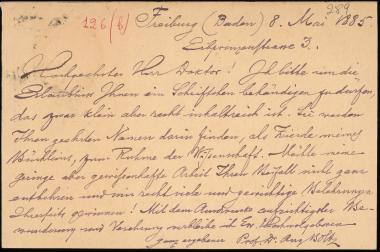 289
126(b) Freiburg (Baden) 8. Mai 1885
3.
Hochgeehrter Herr Doktor! Ich bitte um die
Erlaubniss Ihnen ein Schriftchen behändigen zu dürfen,
das zwar klein aber recht inhaltreich ist. Sie werden
Ihren geehrten Namen darin finden, als Zierde meines
Büchleins, zum Ruhme der Wissenschaft. Möchte meine
geringe aber gewissenhafte Arbeit Ihren Beifall nicht ganz
entbehren und mir recht viele und gewichtige
Ihrerseits gewinnen! Mit dem Ausdrucke aufrichtigster Be-
wunderung und Verehrung verbleibe ich Ew. Wohlgeboren
ganz ergebener Prof. Dr. Aug